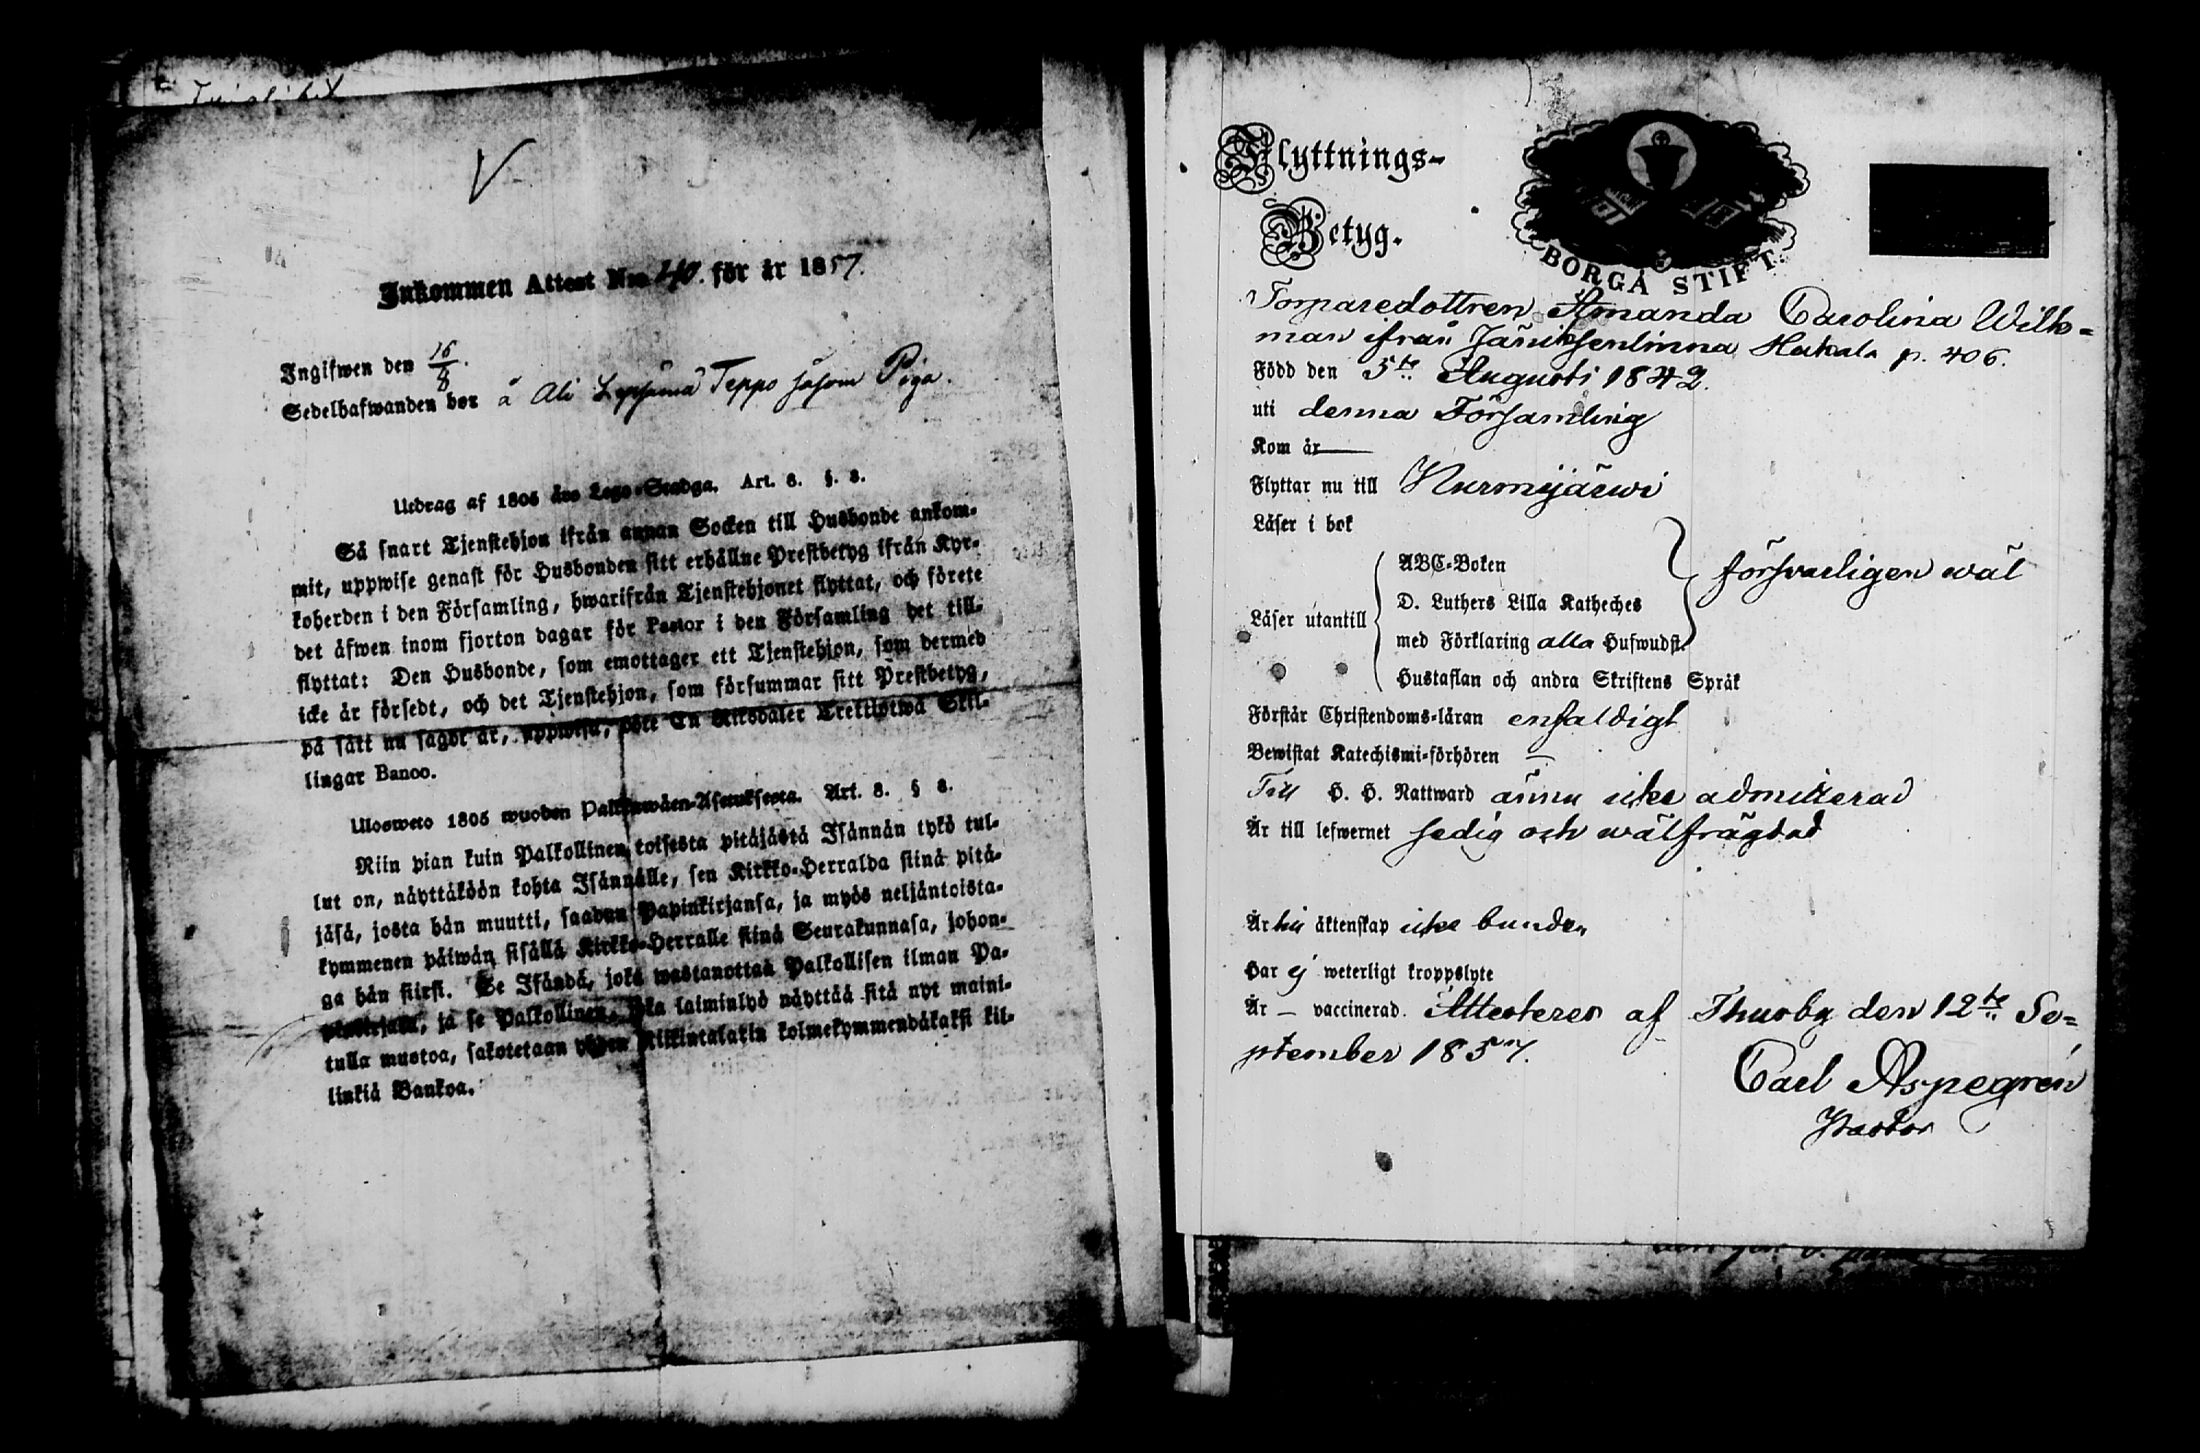 Inkommen Attest N:o 40. för år 1857.
Ingifwen den 16/8.
Sedelhafwanden bor å Ali Lepsämä Teppo såsom Piga.
Utdrag af 1805 års Lego-Stadga. Art. 8. §. 8.
Så snart Tjenstehjon ifrån annan Socken till Husbonde ankom-
mit, uppwise genast för Husbonden sitt erhållne Prestbetyg ifrån Kyr-
koherden i den Församling, hwarifrån Tjenstehjonet flyttat, och förete
det äfwen inom fjorton dagar för Pastor i den Församling det till-
flyttat: Den Husbonde, som emottager ett Tjenstehjon, som dermed
icke är försedt, och det Tjenstehjon, som försummar sitt Prestbetyg,
på sätt nu sagdt är, uppwisa, böte En Riksdaler Tretiotwå Skil-
lingar Banco.
Ulosweto 1805 wuoden Palkkawäen-Asetuksesta. Art. 8. § 8.
Niin pian kuin Palkollinen toisesta pitäjästä Isännän tykö tul-
lut on, näyttäköön kohta Isännälle, sen Kirkko-Herralda siinä pitä-
jäsä, josta hän muutti, saadun Papinkirjansa, ja myös neljäntoista-
kymmenen päiwän sisällä Kirkko-Herralle siinä Seurakunnasa, johon-
ga hän siirsi. Se Isändä, joka wastanottaa Palkollisen ilman Pa-
pinkirjata, ja se Palkollinen, joka laiminlyö näyttää sitä nyt maini-
tulla muotoa, sakotetaan yhden Riikintalarin kolmekymmendäkaksi kil-
linkiä Bankoa.
Flyttnings-
Betyg.
BORGÅ STIFT.
Torparedottren Amanda Carolina Wilk=
man ifrån Jäniksenlinna Hakala p. 406.
Född den 5te Augusti 1842.
uti denna Församling
Kom år
Flyttar nu till Nurmijärwi
Läser i bok
ABC-Boken
försvarligen wäl
D. Luthers Lilla Katheches
Läser utantill
med Förklaring alla Hufwudst.
Hustaflan och andra Skriftens Språk
Förstår Christendoms-läran enfaldigt
Bewistat Katechismi-förhören —
Till H. H. Nattward ännu icke admitterad
Är till lefwernet sedig och wälfrägdad
Är hu äktenskap icke bunden
Har ej weterligt kroppslyte
Är — vaccinerad. Attesteres af Thusby den 12te Se=
ptember 1857.
Carl Aspegrén
Pastor